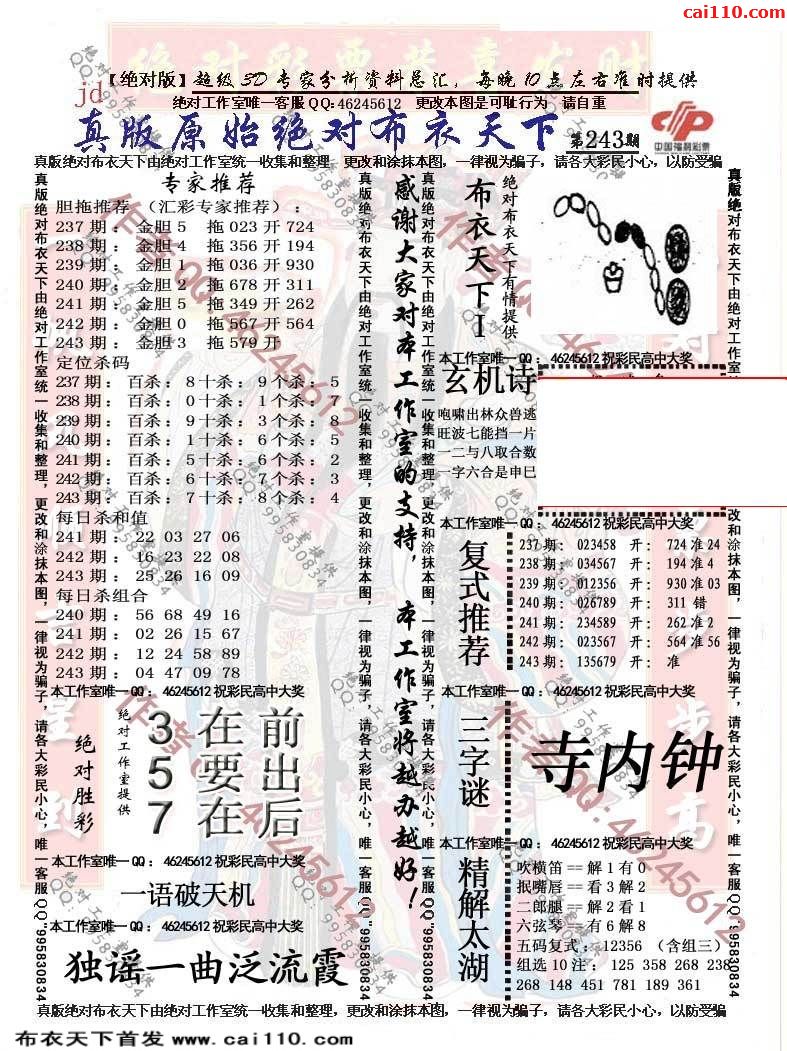 cai110.com
绝对彩票恭喜发财
【绝对版】超级3D专家分析资料总汇,每晚10点左右准时提供
jd
绝对工作室唯一客服QQ:46245612 更改本图是可耻行为 请自重
真版原始绝对布衣天下 第243期
中国福利彩票
真版绝对布衣天下由绝对工作室统一收集和整理,更改和涂抹本图,一律视为骗子,请各大彩民小心,以防受骗
真版绝对布衣天下由绝对工作室统一收集和整理,更改和涂抹本图,一律视为骗子,请各大彩民小心,唯一客服QQ"995830834
专家推荐
胆拖推荐 (汇彩专家推荐):
237期:金胆5 拖023开724
238期:金胆4 拖356开194
239期:金胆1 拖036开930
240期:金胆2 拖678开311
241期:金胆5 拖349开262
242期:金胆0 拖567开564
243期:金胆3 拖579开
定位杀码
237期:百杀:8十杀:9个杀:5
238期:百杀:0十杀:1个杀:7
239期:百杀:9十杀:3个杀:8
240期:百杀:1十杀:6个杀:5
241期:百杀:5十杀:6个杀:2
242期:百杀:6十杀:7个杀:3
243期:百杀:7十杀:8个杀:4
每日杀和值
241期:22 03 27 06
242期:16 23 22 08
243期:25 26 16 09
每日杀组合
240期:56 68 49 16
241期:02 26 15 67
242期:12 24 58 89
243期:04 47 09 78
本工作室唯一QQ:46245612祝彩民高中大奖
绝对胜彩
绝对工作室提供
3 在 前
5 要 出
7 在 后
本工作室唯一QQ:46245612祝彩民高中大奖
一语破天机
本工作室唯一QQ:46245612祝彩民高中大奖
独谣一曲泛流霞
真版绝对布衣天下由绝对工作室统一收集和整理,更改和涂抹本图,一律视为骗子,请各大彩民小心,唯一客服QQ"995830834
感谢大家对本工作室的支持,本工作室将越办越好!
真版绝对布衣天下由绝对工作室统一收集和整理,更改和涂抹本图,一律视为骗子,请各大彩民小心,唯一客服QQ"995830834
布衣天下I
绝对布衣天下有情提供
本工作室唯一QQ:46245612祝彩民高中大奖
玄机诗
咆啸出林众兽逃
旺波七能挡一片
一二与八取合数
一字六合是申巳
本工作室唯一QQ:46245612祝彩民高中大奖
复式推荐
237期:023458 开:724准24
238期:034567 开:194准4
239期:012356 开:930准03
240期:026789 开:311 错
241期:234589 开:262准2
242期:023567 开:564准56
243期:135679 开: 准
本工作室唯一QQ:46245612祝彩民高中大奖
三字谜
寺内钟
本工作室唯一QQ:46245612祝彩民高中大奖
精解太湖
吹横笛==解1有0
抿嘴唇==看3解2
二郎腿==解2看1
六弦琴==有6解8
五码复式:12356 (含组三)
组选10注:125 358 268 238
268 148 451 781 189 361
真版绝对布衣天下由绝对工作室统一收集和整理,更改和涂抹本图,一律视为骗子,请各大彩民小心,唯一客服QQ"995830834
真版绝对布衣天下由绝对工作室统一收集和整理,更改和涂抹本图,一律视为骗子,请各大彩民小心,以防受骗
布衣天下首发 www.cai110.com